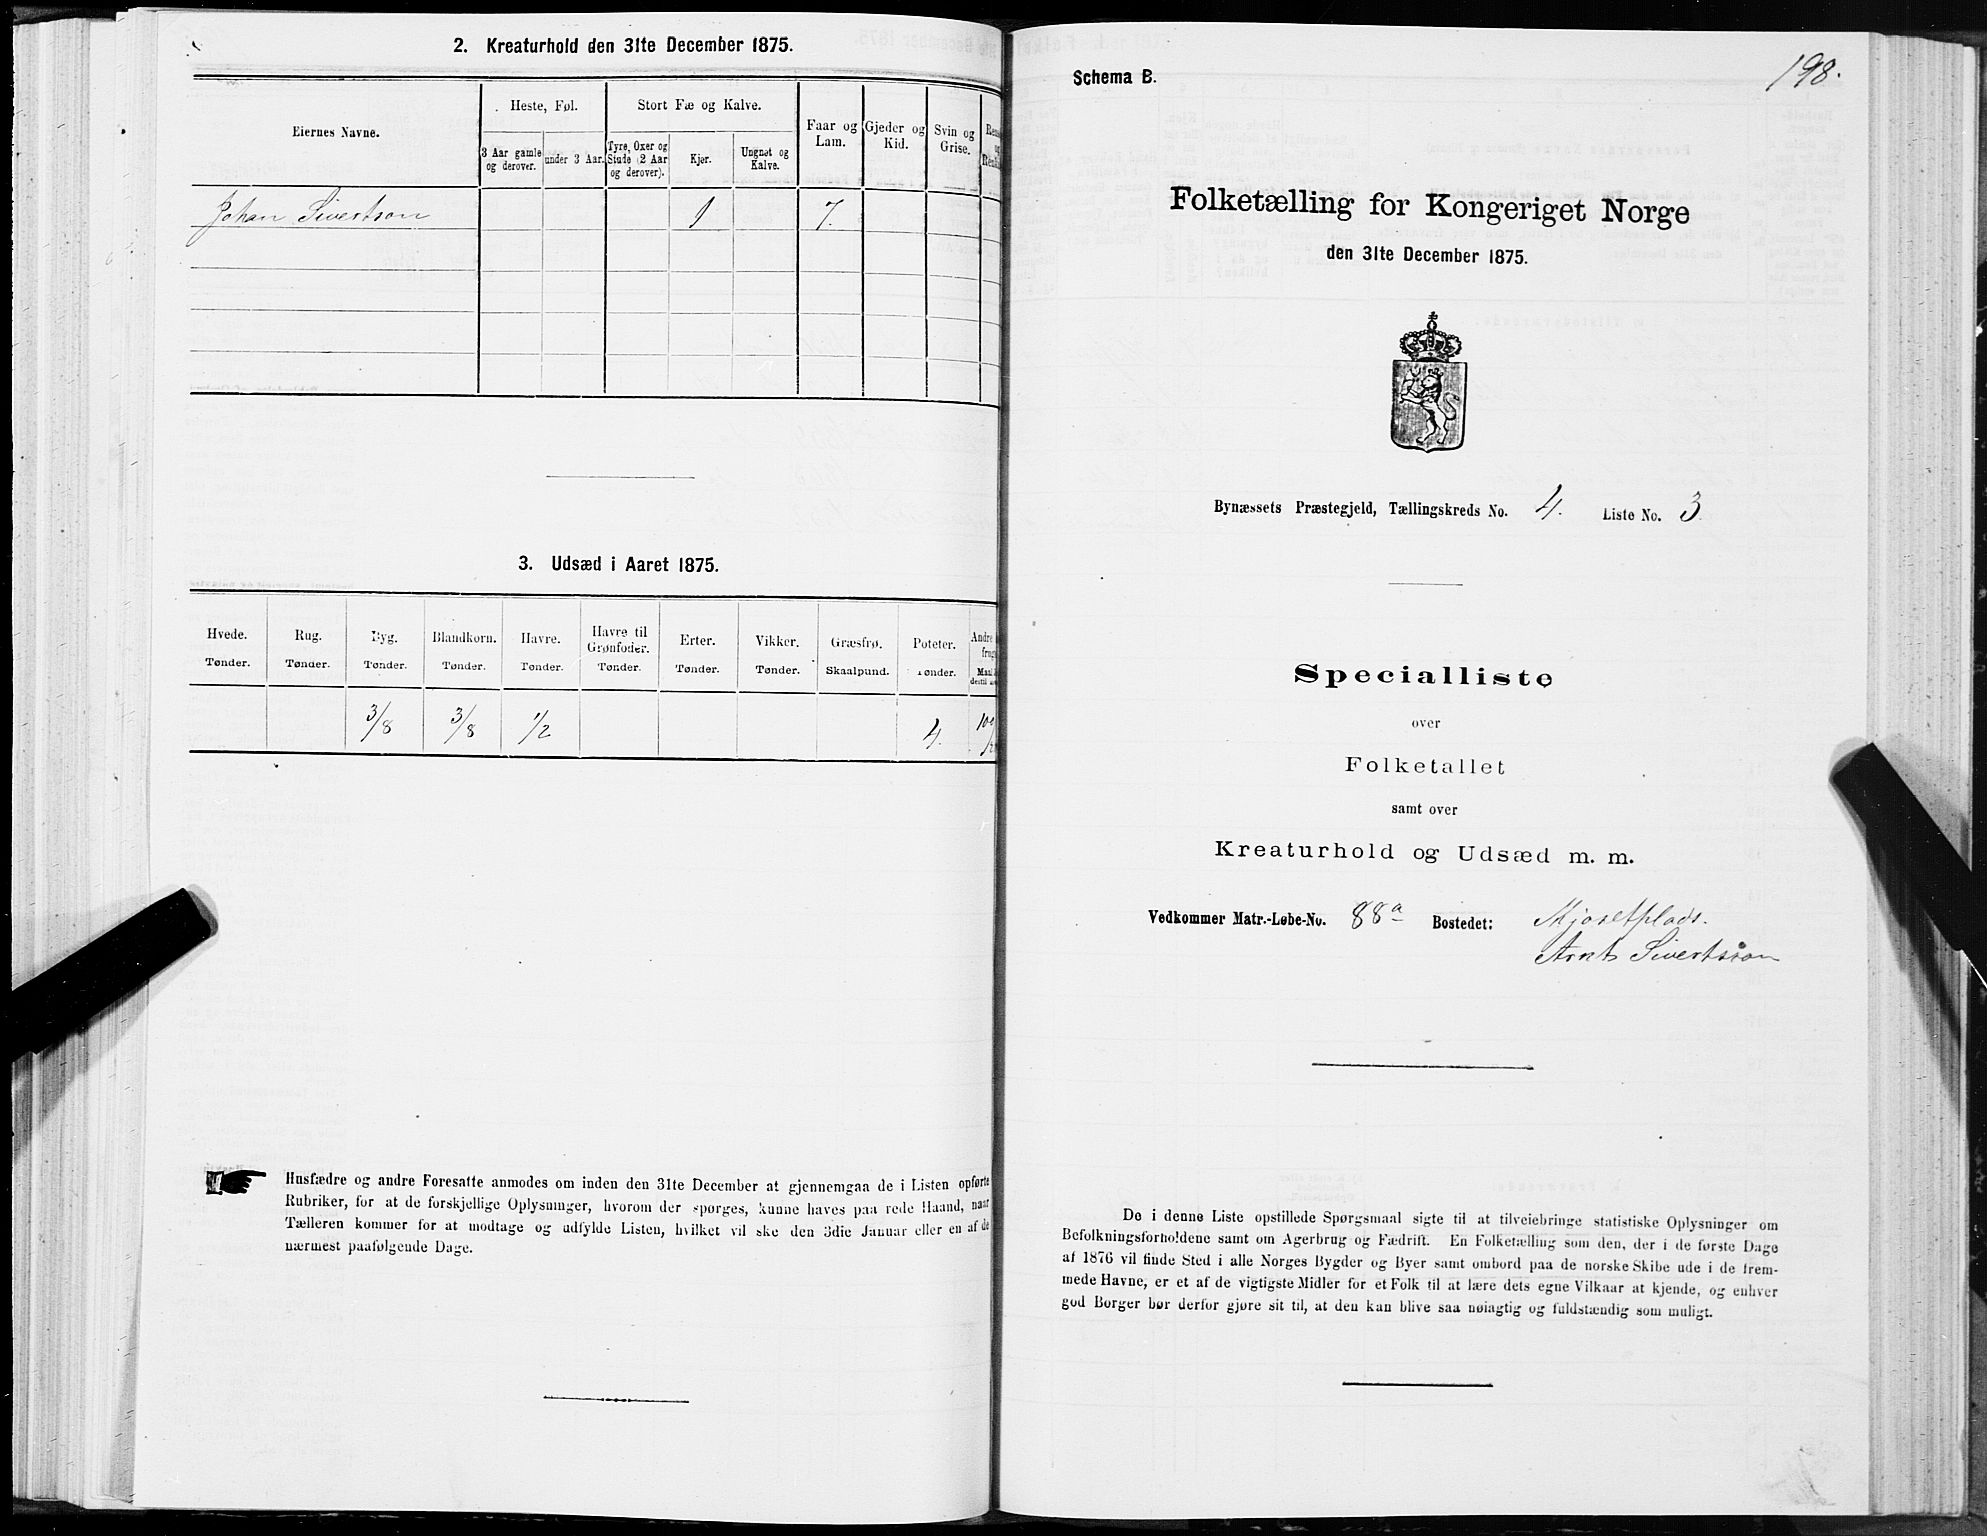 2. Kreaturhold den 31te December 1875.
Eiernes Navne.
Heste, Føl.
Stort Fæ og Kalve.
Faar og Lam.
Gjeder og Kid.
Svin og Grise.
3 Aar gamle og derover.
under 3 Aar.
Tyre, Oxer og Stude (2 Aar og derover).
Kjør.
Ungnøt og Kalve.
Johan Sivertson 1 7.
3. Udsæd i Aaret 1875.
Hvede. Rug. Byg. Blandkorn. Havre. Havre til Grønfoder. Erter. Vikker. Græsfrø. Poteter. Andre
Tønder. Tønder. Tønder. Tønder. Tønder. Tønder. Tønder. Tønder. Skaalpund. Tønder.
3/8 3/8 1/2 4.
Husfædre og andre Foresatte anmodes om inden den 31te December at gjennemgaa de i Listen opførte
Rubriker, for at de forskjellige Oplysninger, hvorom der spørges, kunne haves paa rede Haand, naar
Tælleren kommer for at modtage og udfylde Listen, hvilket vil ske den 3die Januar eller en af de
nærmest paafølgende Dage.
Schema B.
198.
Folketælling for Kongeriget Norge
den 31te December 1875.
Bynæssets Præstegjeld, Tællingskreds No. 4. Liste No. 3
Specialliste
over
Folketallet
samt over
Kreaturhold og Udsæd m. m.
Vedkommer Matr.-Løbe-No. 88a Bostedet: Mjosetplads.
Arnt Sivertsson
De i denne Liste opstillede Spørgsmaal sigte til at tilveiebringe statistiske Oplysninger om
Befolkningsforholdene samt om Agerbrug og Fædrift. En Folketælling som den, der i de første Dage
af 1876 vil finde Sted i alle Norges Bygder og Byer samt ombord paa de norske Skibe ude i de frem-
mede Havne, er et af de vigtigste Midler for et Folk til at lære dets egne Vilkaar at kjende, og enhver
god Borger bør derfor gjøre sit til, at den kan blive saa nøiagtig og fuldstændig som muligt.